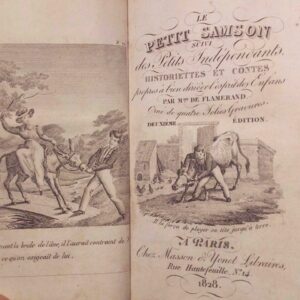 LE
PETIT SAMSON
SUIVI
des Petits Indépendants,
HISTORIETTES ET CONTES
propres à bien diriger l'esprit des Enfans
PAR MME DE FLAMERAND.
Orné de quatre Jolies Gravures.
DEUXIEME EDITION.
il le força de ployer sa tête jusqu'à terre.
A PARIS.
Chez Masson & Yonet Libraires,
Rue Hautefeuille N.º 14
1828.
la bride de l'âne, il l'aurait contraint de
ce qu'on exigeait de lui.